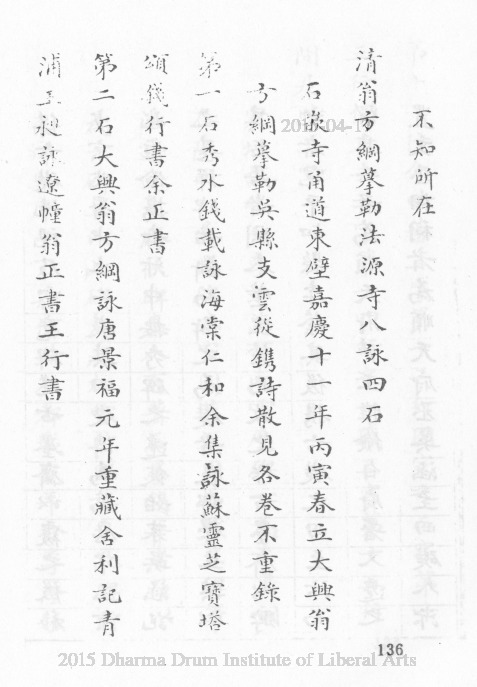 不知所在
清翁方綱摹勒法源寺八詠四石
石嵌寺甬道東壁嘉慶十一年丙寅春立大興翁
方綱摹勒吳縣支雲從鐫詩散見各卷不重錄
第一石秀水錢載詠海棠仁和余集詠蘇靈芝寶塔
頌錢行書余正書
第二石大興翁方綱詠唐景福元年重藏舍利記青
浦王昶詠遼幢翁正書王行書
136
2015 Dharma Drum Institute of Liberal Arts